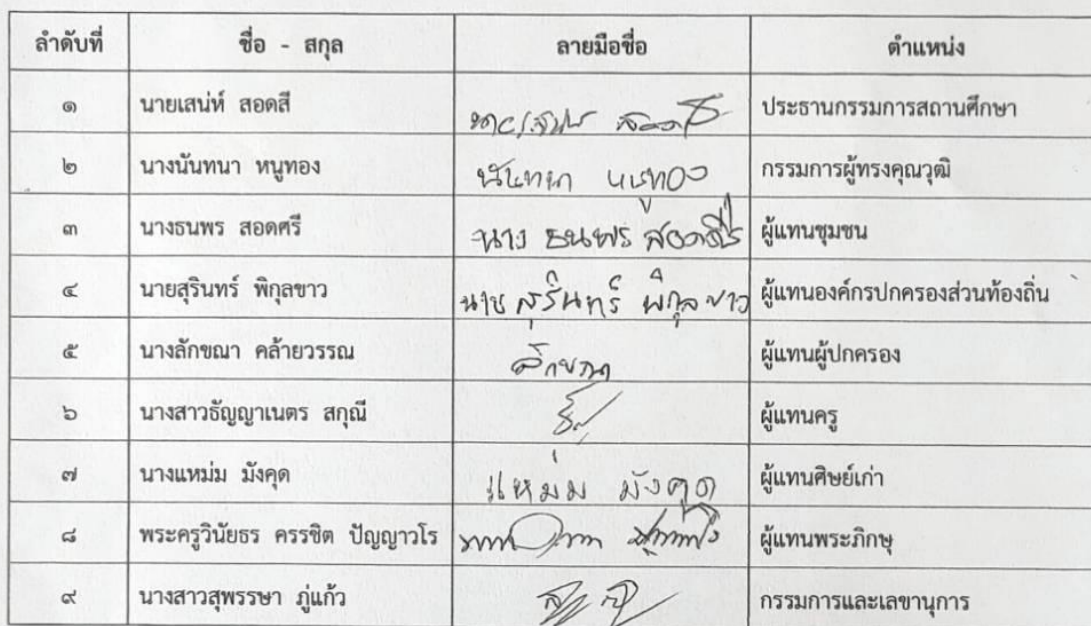 ลำดับที่ ชื่อ - สกุล ลายมือชื่อ ตำแหน่ง
๑ นายเสน่ห์ สอดสี ประธานกรรมการสถานศึกษา
๒ นางนันทนา หนูทอง นันทนา หนูทอง กรรมการผู้ทรงคุณวุฒิ
๓ นางธนพร สอดศรี นาง ธนพร สอดศรี ผู้แทนชุมชน
๔ นายสุรินทร์ พิกุลขาว นาย สุรินทร์ พิกุลขาว ผู้แทนองค์กรปกครองส่วนท้องถิ่น
๕ นางลักขณา คล้ายวรรณ ลักขณา ผู้แทนผู้ปกครอง
๖ นางสาวธัญญาเนตร สกุณี ผู้แทนครู
๗ นางแหม่ม มังคุด แหม่ม มังคุด ผู้แทนศิษย์เก่า
๘ พระครูวินัยธร ครรชิต ปัญญาวโร ผู้แทนพระภิกษุ
๙ นางสาวสุพรรษา ภู่แก้ว กรรมการและเลขานุการ